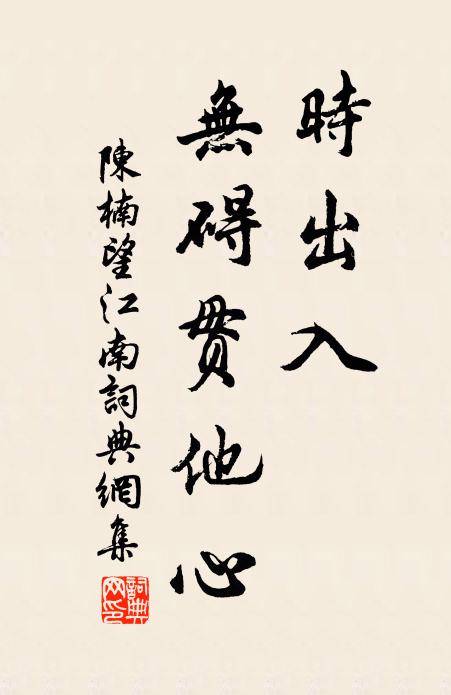 時出入
無碍貫他心
陳楠望江南詞典網集
詞典網印